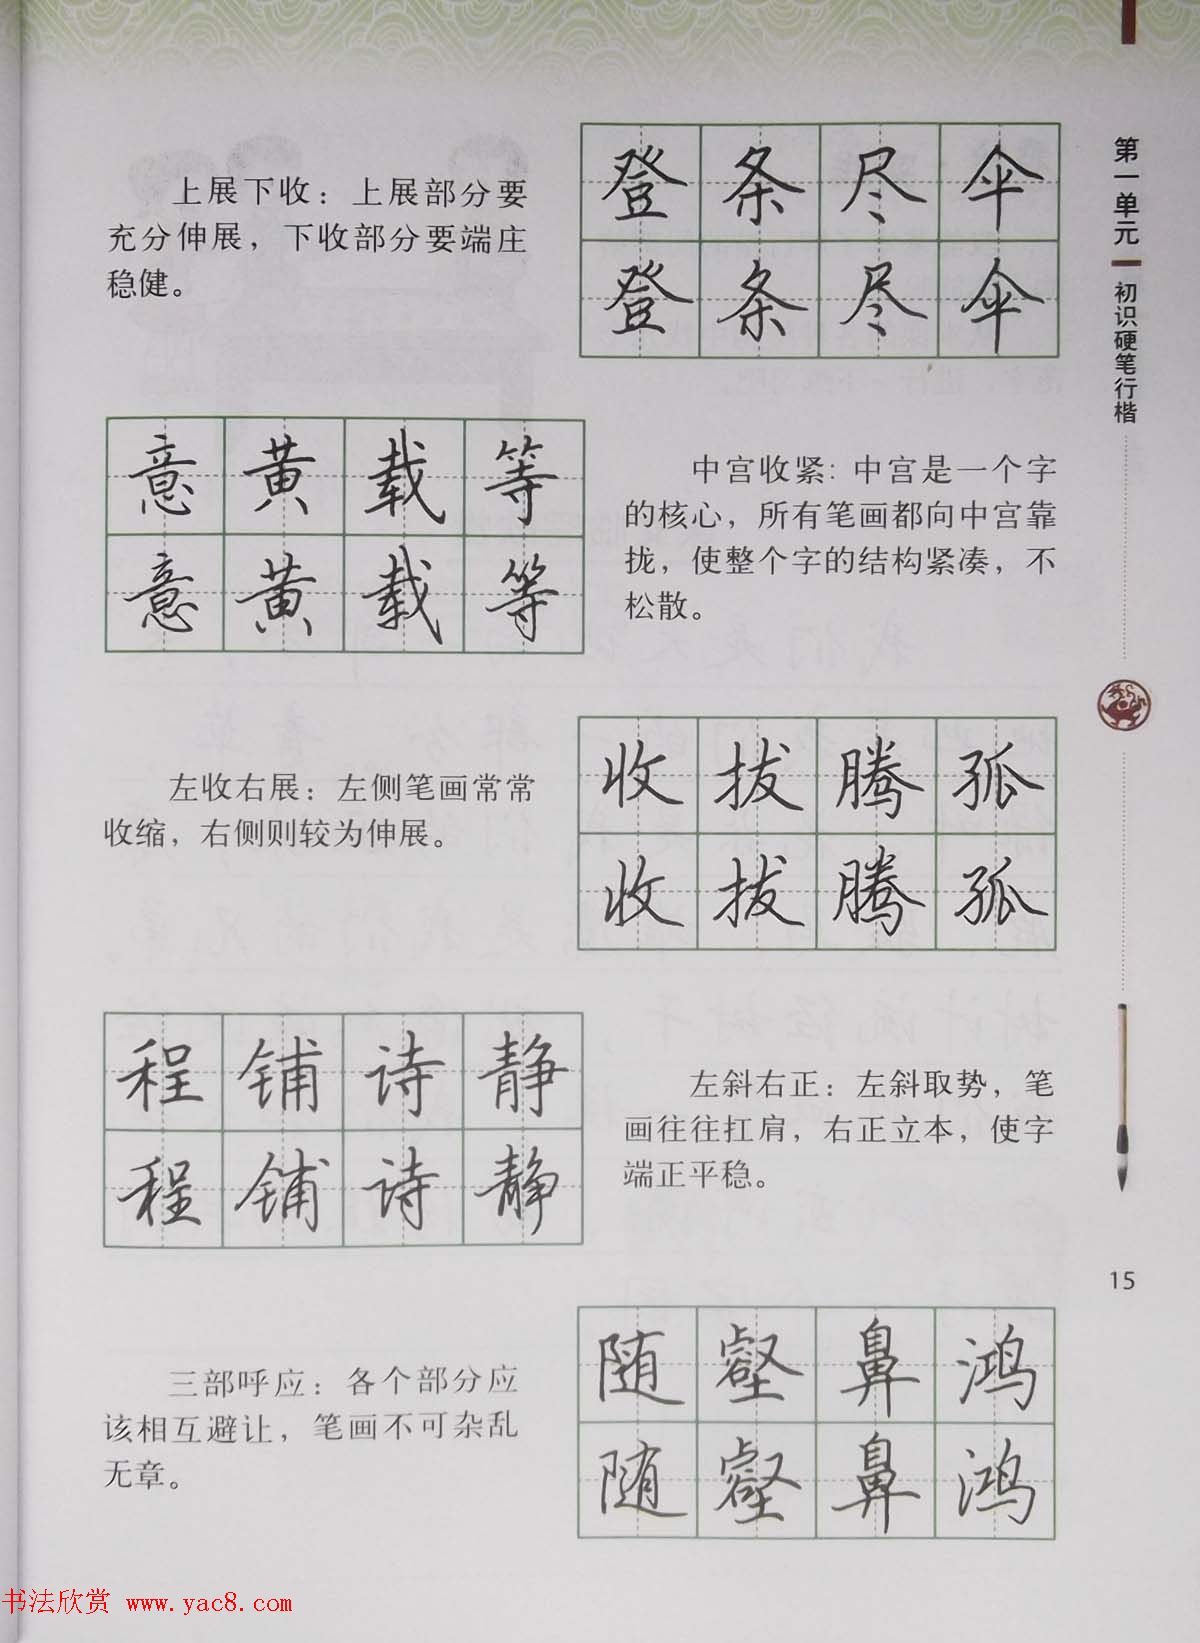 第一单元
初识硬笔行楷
上展下收：上展部分要
充分伸展，下收部分要端庄
稳健。
登条尽伞
登条尽伞
意黄载等
意黄载等
中宫收紧：中宫是一个字
的核心，所有笔画都向中宫靠
拢，使整个字的结构紧凑，不
松散。
左收右展：左侧笔画常常
收缩，右侧则较为伸展。
收拔腾孤
收拔腾孤
程铺诗静
程铺诗静
左斜右正：左斜取势，笔
画往往扛肩，右正立本，使字
端正平稳。
15
三部呼应：各个部分应
该相互避让，笔画不可杂乱
无章。
随壑鼻鸿
随壑鼻鸿
书法欣赏 www.yac8.com